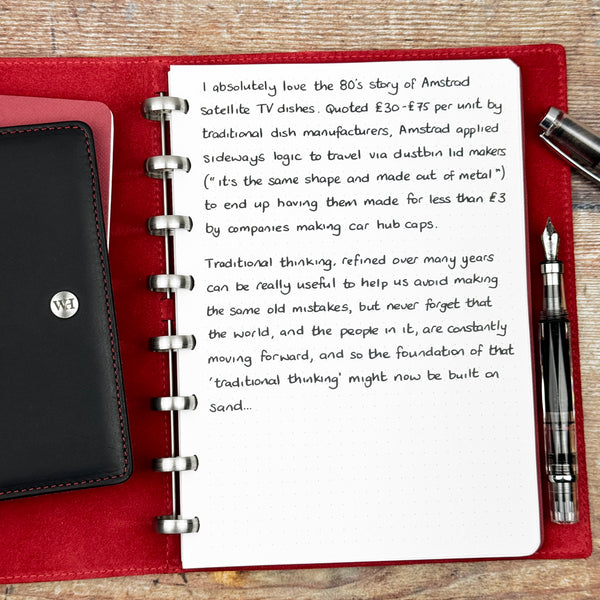 I absolutely love the 80's story of Amstrad
satellite TV dishes. Quoted £30-£75 per unit by
traditional dish manufacturers, Amstrad applied
sideways logic to travel via dustbin lid makers
("it's the same shape and made out of metal")
to end up having them made for less than £3
by companies making car hub caps.
Traditional thinking, refined over many years
can be really useful to help us avoid making
the same old mistakes, but never forget that
the world, and the people in it, are constantly
moving forward, and so the foundation of that
'traditional thinking' might now be built on
sand...